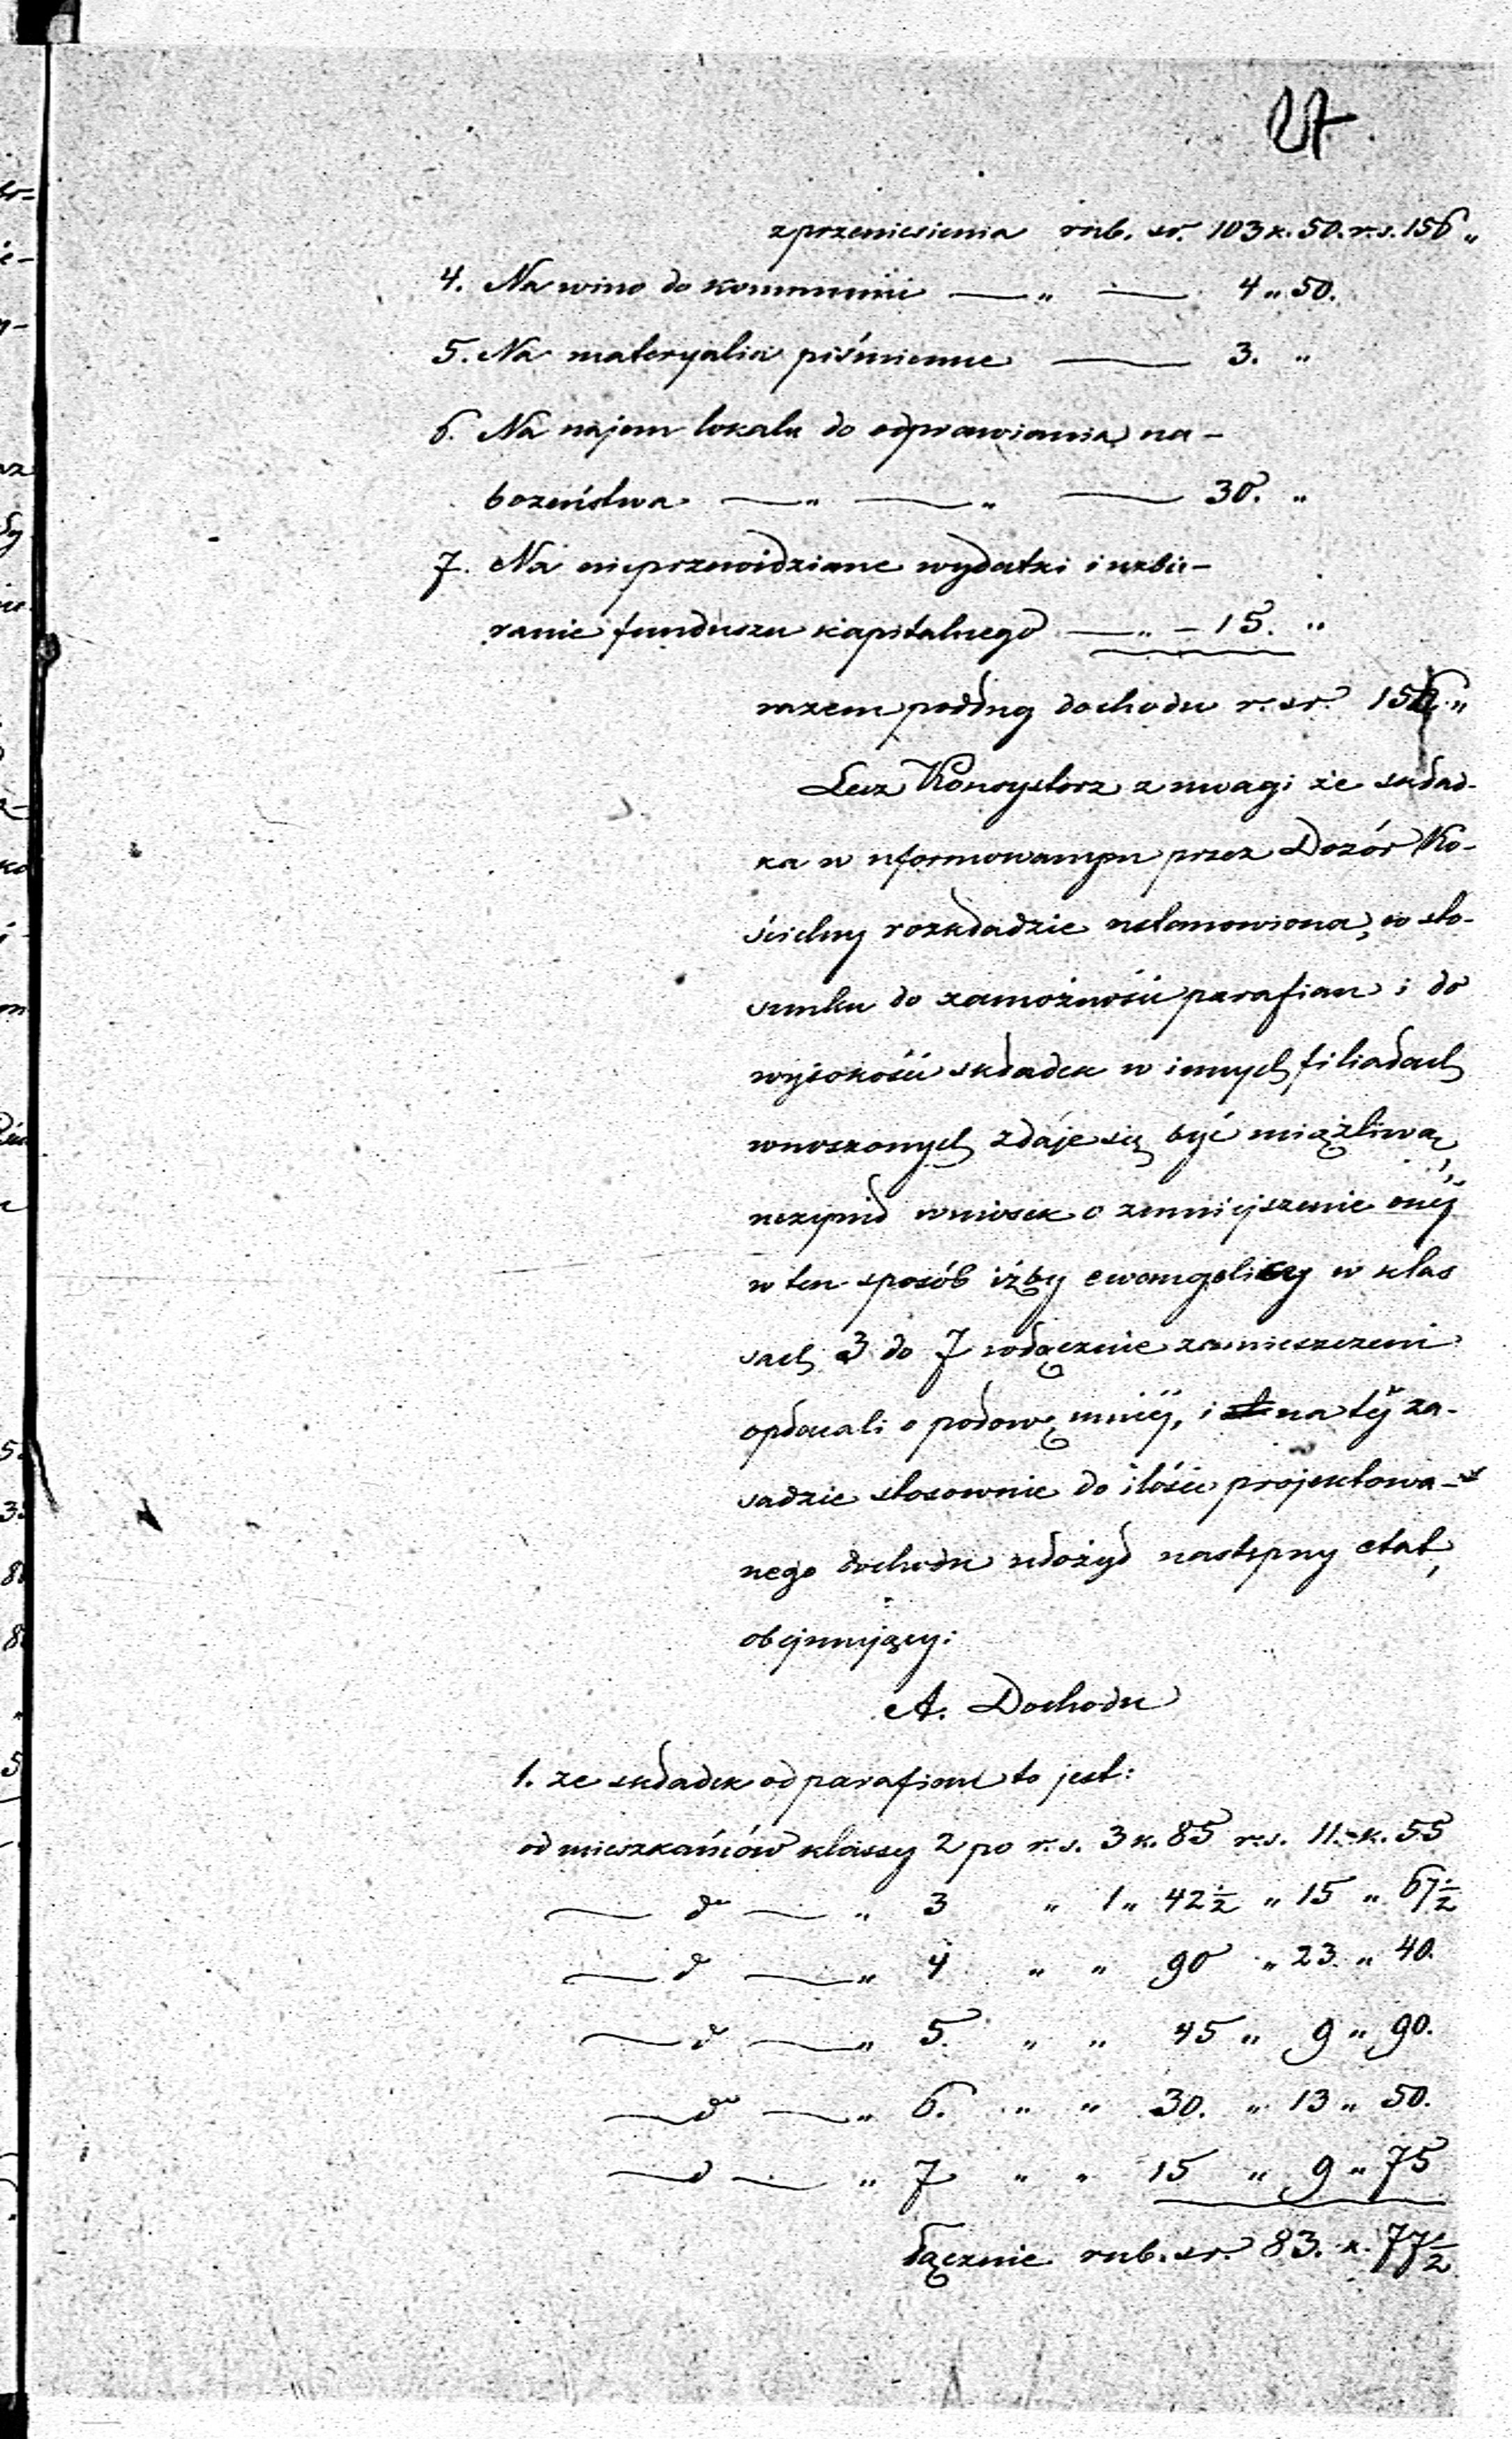 27
z przeniesienia rub. sr. 103 k. 50. r. s. 156 „
4. Na wino do kommunii — „ — 4 „ 50.
5. Na materyalia piśmienne — 3. „
6. Na najem lokalu do odprawiania na-
bożeństwa — „ — „ — 30. „
7. Na nieprzewidziane wydatki i uzbie-
ranie funduszu kapitalnego — „ — 15. „
razem podług dochodu r. sr. 156 „
Lecz Konsystorz z uwagi że skład-
ka w uformowanym przez Dozór Ko-
ścielny rozkładzie ustanowiona, w sto-
sunku do zamożności parafian i do
wysokości składek w innych filiałach
wnoszonych zdaje się być uciążliwą,
uczynił wniosek o zmniejszenie onéj
w ten sposób iżby ewangelicy w klas
sach 3 do 7 włącznie zamieszczeni
opłacali o połowę mniéj, i na téj za-
sadzie stosownie do ilości projektowa-
nego dochodu ułożył następny etat,
obejmujący:
A. Dochodu
1. ze składek od parafian to jest:
od mieszkańców klassy 2 po r. s. 3 k. 85 r. s. 11. k. 55
— do — „ 3 „ 1 „ 42½ „ 15 „ 67½
— do — „ 4 „ „ 90 „ 23. „ 40.
— do — „ 5. „ „ 45 „ 9 „ 90.
— do — „ 6. „ „ 30. „ 13 „ 50.
— do — „ 7 „ „ 15 „ 9 „ 75
łącznie rub. sr. 83. k. 77½